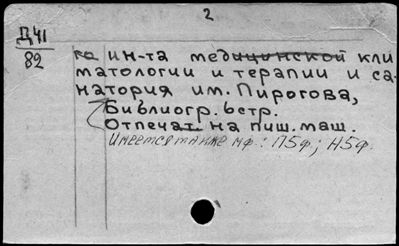 2
Д41
82
го ин-та медицинской кли
матологии и терапии и са-
натория им. Пирогова,
Библиогр. 6стр.
Отпечат. на пиш. маш.
Имеется также мф.: П5ф.; Н5ф.